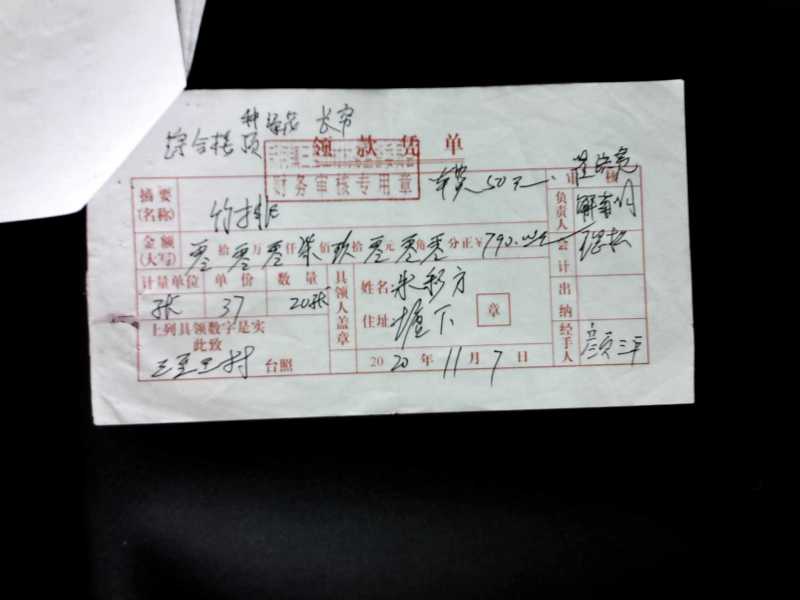 综合楼顶
领款凭单
财务审核专用章
车费50元
审核
摘要(名称) 竹排
负责人
金额(大写) 零拾零万零仟柒佰玖拾零元零角零分正￥790.00元
会计
计量单位 单价 数量 具领人盖章 姓名:米彩方
张 37 20张 住址:坛下 章
出纳
上列具领数字是实
此致
三里王村 台照
2020年11月7日
经手人 颜三平